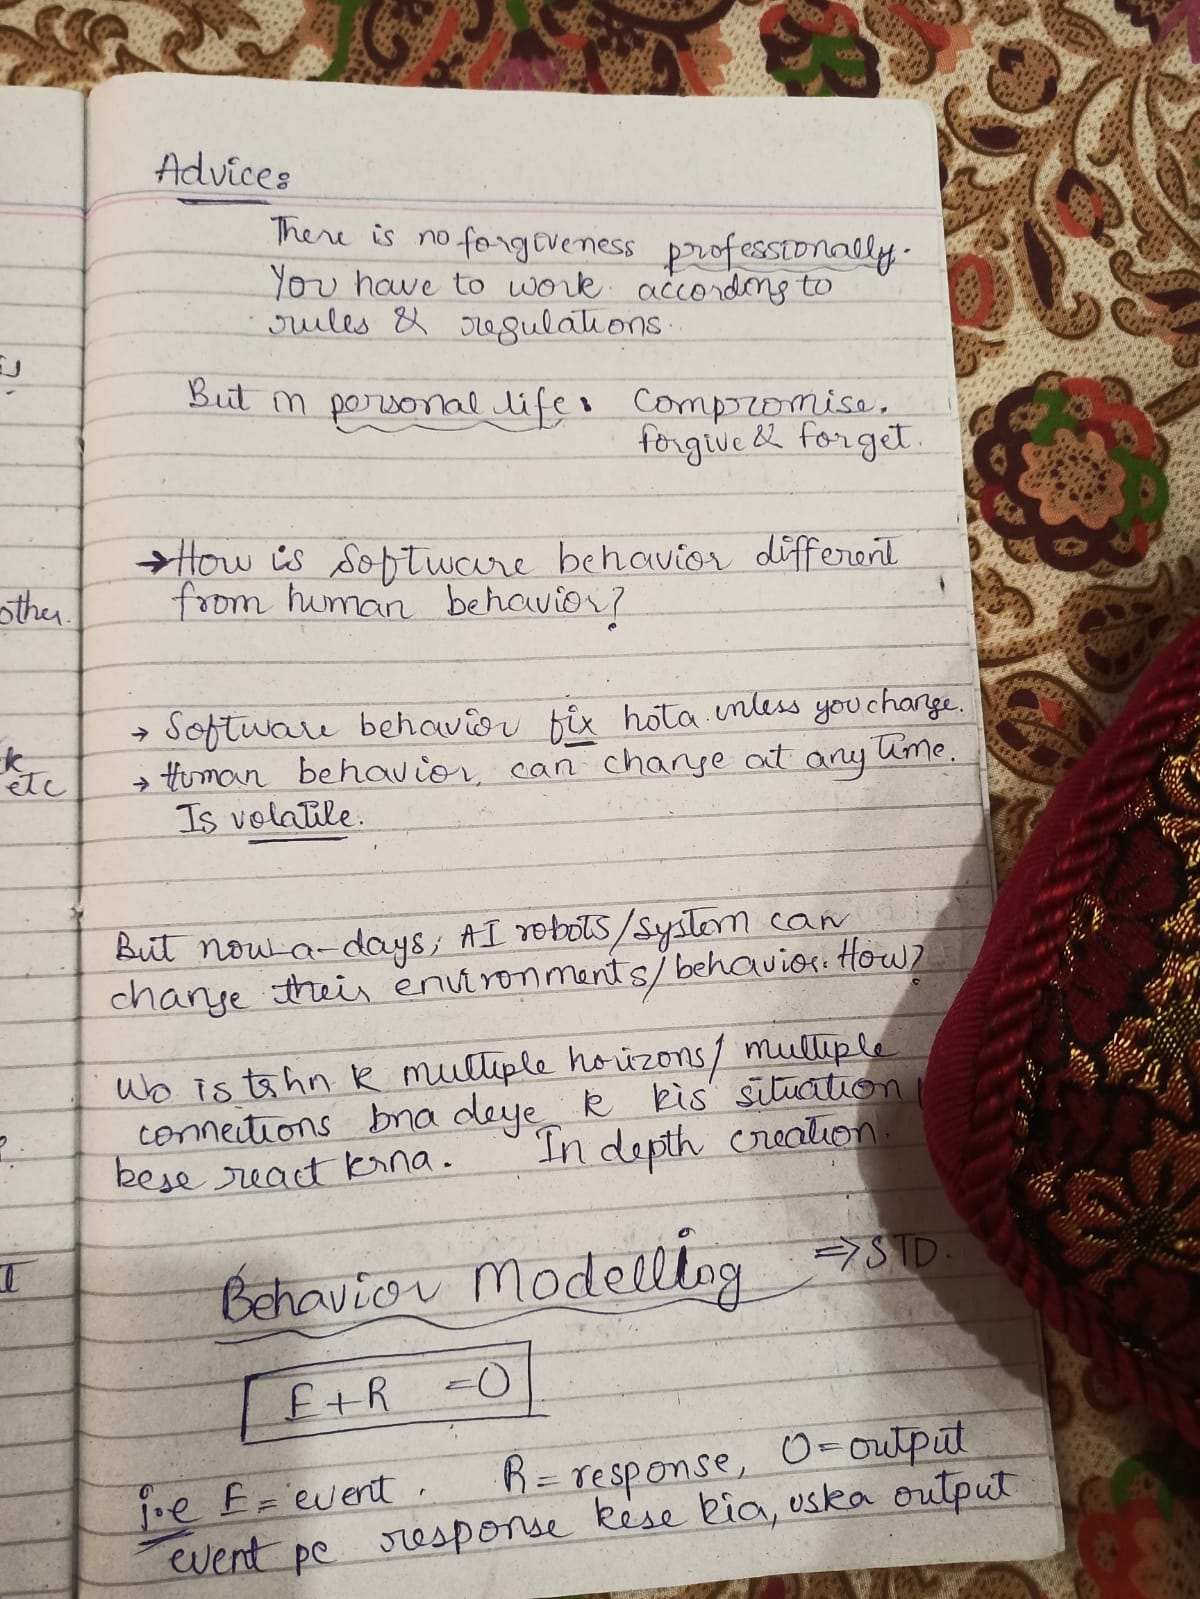 Advice:
There is no forgiveness professionally.
You have to work according to
rules & regulations.
But in personal life: Compromise.
forgive & forget.
→ How is Software behavior different
from human behavior?
→ Software behavior fix hota unless you change.
→ Human behavior, can change at any time.
Is volatile.
But now-a-days, AI robots/system can
change their environments/behavior. How?
Wo is trhn k multiple horizons/ multiple
connections bna deye k kis situation
kese react krna. In depth creation.
Behavior Modelling ⇒ STD.
E+R =O
i.e E = event. R = response, O = output
event pe response kese kia, uska output
other.
k
etc